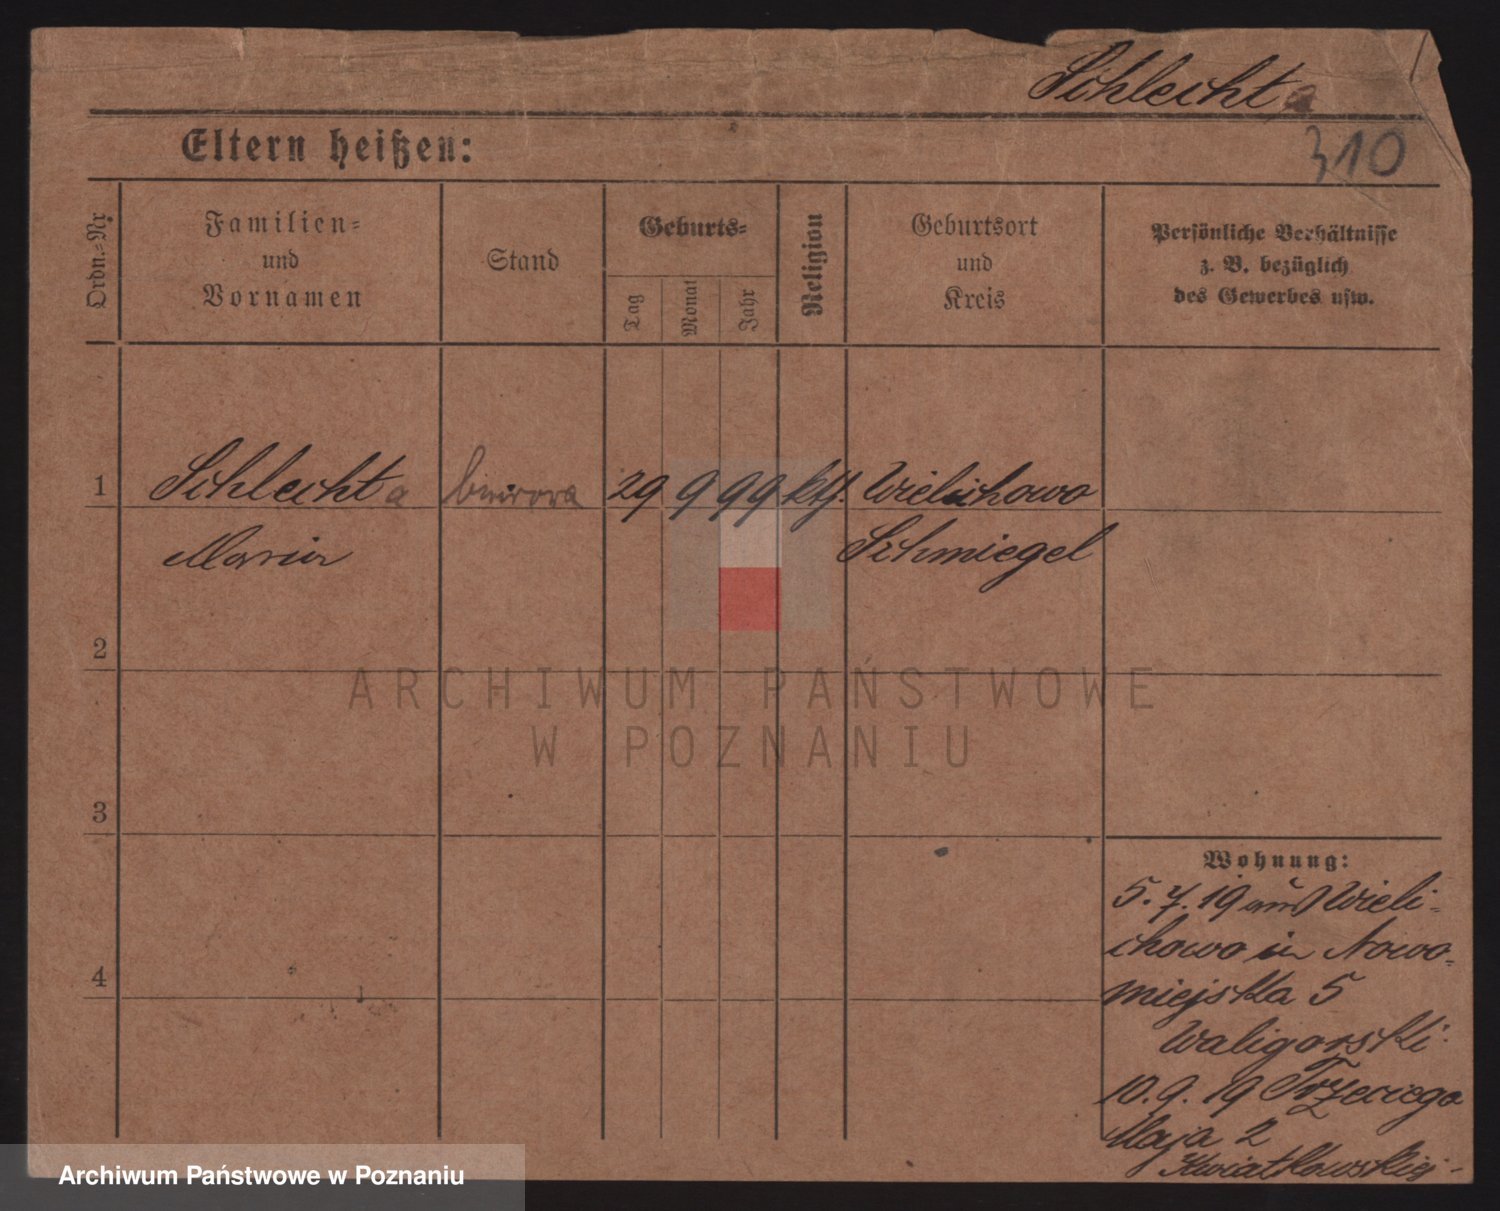 Schlechta
310
Eltern heißen:
Ordn.-Nr.
Familien-
und
Vornamen
Stand
Geburts-
Tag
Monat
Jahr
Religion
Geburtsort
und
Kreis
Persönliche Verhältnisse
z. B. bezüglich
des Gewerbes usw.
1
Schlechta
biurowa
29
9
99
kth.
Wielichowo
Maria
Schmiegel
2
ARCHIWUM PAŃSTWOWE
W POZNANIU
3
4
Wohnung:
5. 7. 19 aus Wieli-
chowo in Nowo-
miejska 5
Waligorski
10. 9. 19 Trzeciego
Maja 2
Kwiatkowskiej
Archiwum Państwowe w Poznaniu